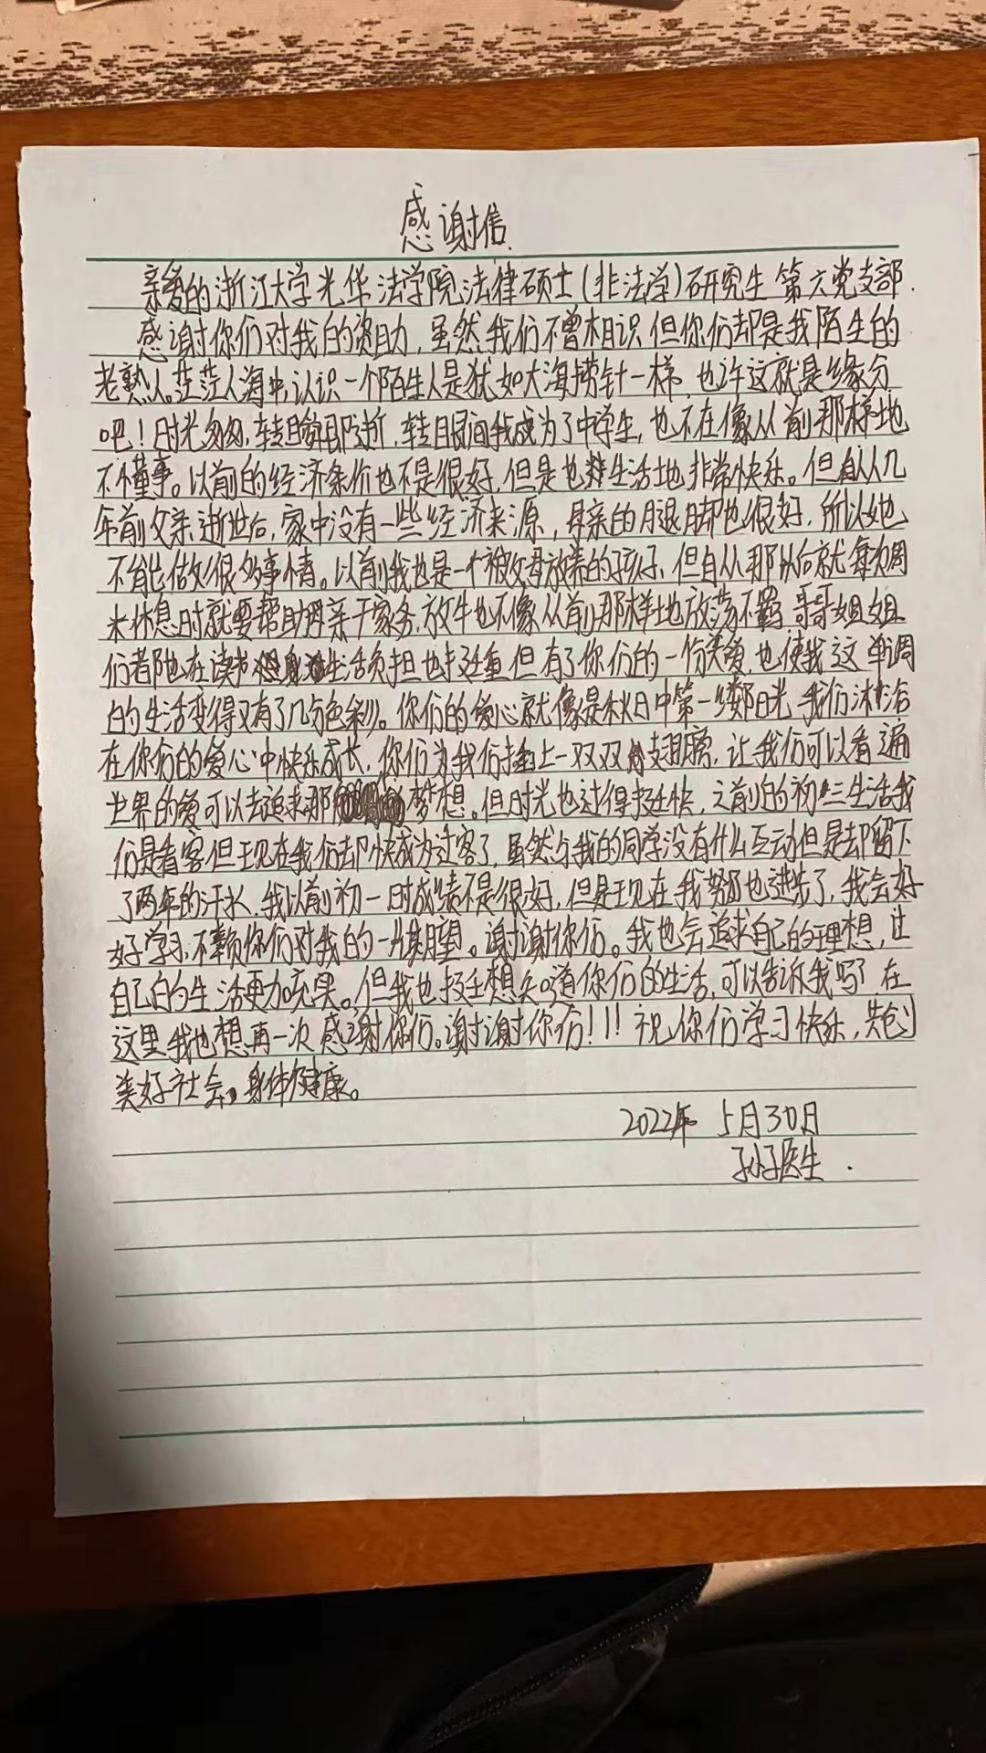 感谢信
亲爱的浙江大学光华法学院法律硕士(非法学)研究生第六党支部.
感谢你们对我的资助,虽然我们不曾相识但你们却是我陌生的
老熟人。茫茫人海中,认识一个陌生人是犹如大海捞针一样,也许这就是缘分
吧!时光匆匆,转瞬即逝,转眼间我成为了中学生,也不在像从前那样地
不懂事。以前的经济条价也不是很好,但是也生活地非常快乐。但自从几
年前父亲逝世后,家中没有一些经济来源,母亲的腿脚也很好,所以她
不能做很多事情。以前我也是一个被父母放养的孩子,但自从那以后就每次周
末休息时就要帮助母亲干家务,放牛也不像从前那样地放荡不羁,哥哥姐姐
们都也在读书生活负担也挺重但有了你们的一份关爱,也使我这单调
的生活变得又有了几分色彩。你们的爱心就像是秋日中第一缕阳光我们沐浴
在你们的爱心中快乐成长,你们为我们插上一双双翅膀,让我们可以看遍
世界的爱可以去追求那梦想。但时光也过得挺快,之前的初三生活我
们是看客但现在我们却快成为过客了,虽然与我的同学没有什么互动但是却留下
了两年的汗水,我以前初一时成绩不是很好,但是现在我努力也进步了,我会好
好学习,不负你们对我的一片期望。谢谢你们。我也会追求自己的理想,让
自己的生活更加充实。但我也挺想知道你们的生活,可以告诉我吗?在
这里我也想再一次感谢你们。谢谢你们!!!祝你们学习快乐,共创
美好社会,身体健康。
2022年 5月30日
孙子医生.